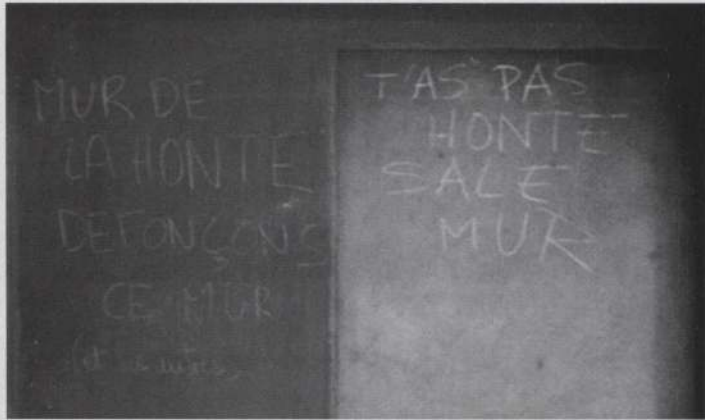 MUR DE
LA HONTE
DEFONÇONS
CE MUR
(et
T'AS PAS
HONTE
SALE
MUR